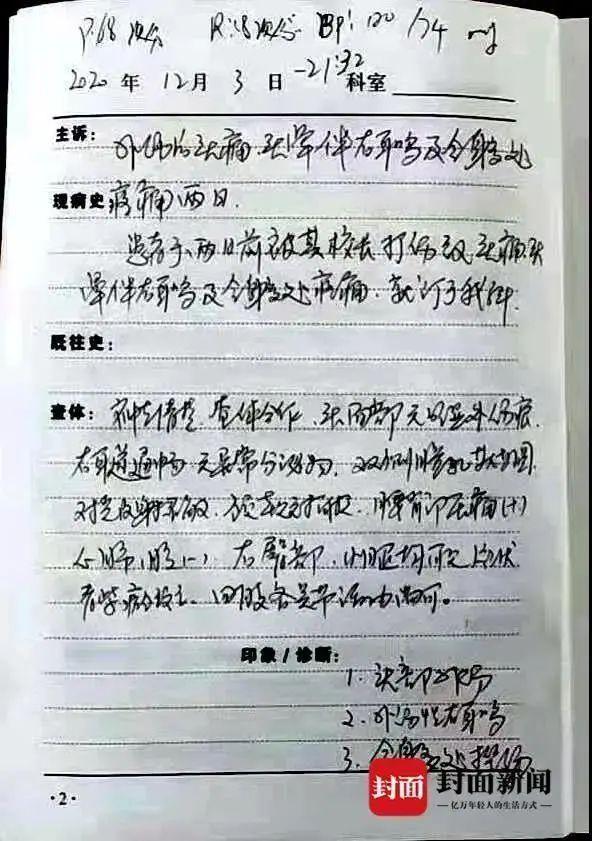 P:68次/分 R:18次/分 BP:120/74 mg
2020年12月3日-21:32科室
主诉:外伤后头痛头晕伴右耳鸣及全身多处
现病史:疼痛两日.
患者于两日前被其校长打伤致头痛头
晕伴右耳鸣及全身多处疼痛.就诊于我科.
既往史:
查体:神志清楚.查体合作.头面部无明显外伤痕.
右耳道通畅无异常分泌物.双侧瞳孔等大等圆.
对光反射灵敏.颈软无抵抗.腰背部压痛(+)
心肺腹(-).右臀部.
四肢各关节活动尚可。
印象/诊断:
1.头部外伤
2.外伤性右耳鸣
3.全身多处挫伤
·2·
封面 封面新闻
—亿万年轻人的生活方式—